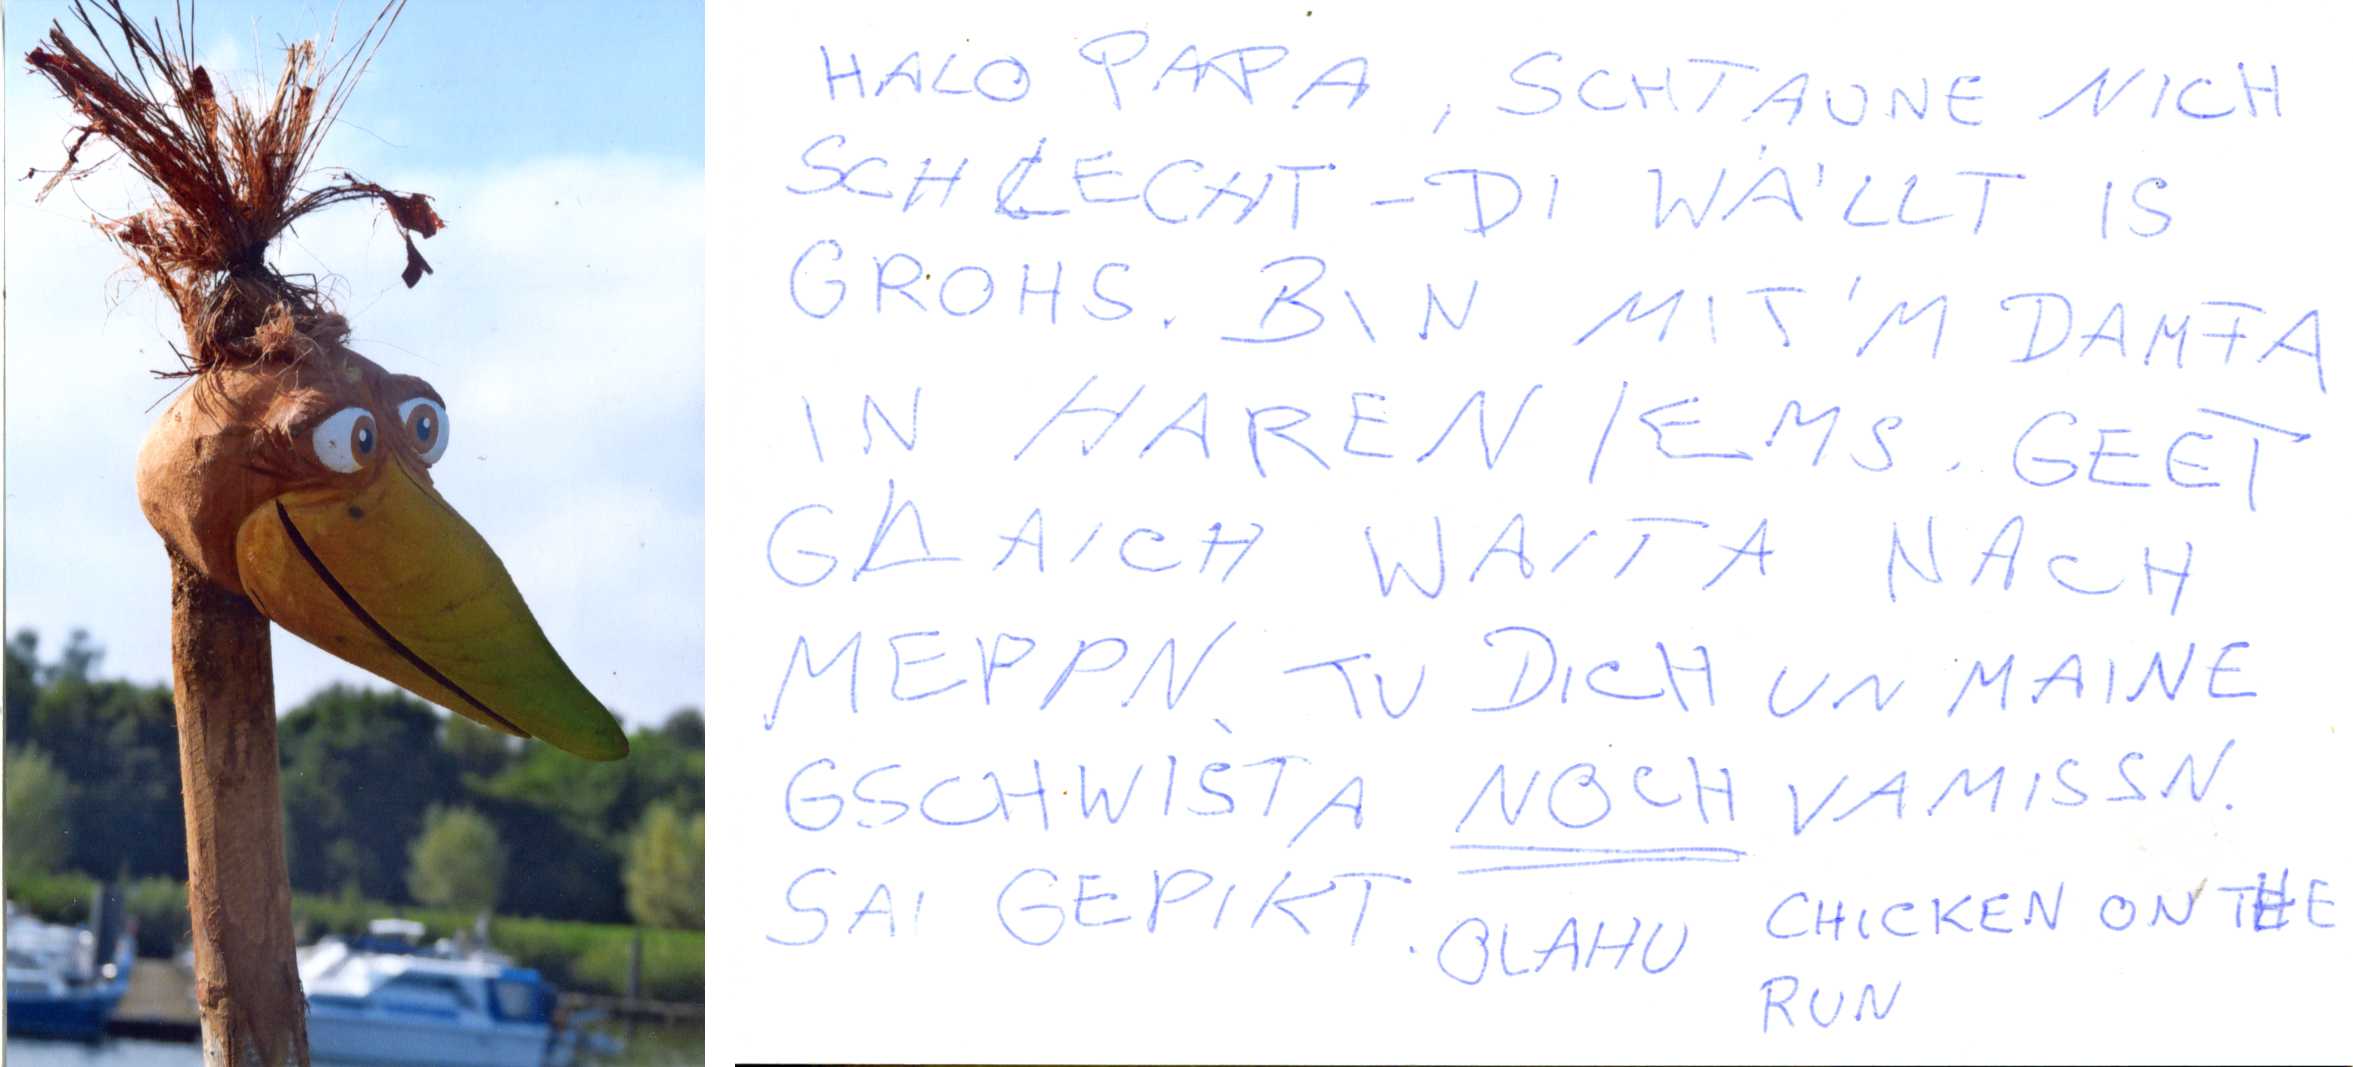 HALO PAPA, SCHTAUNE NICH
SCHLECHT - DI WÄLLT IS
GROHS. BIN MIT'M DAMFA
IN HAREN/EMS. GEET
GLAICH WAITA NACH
MEPPN, TU DICH UN MAINE
GSCHWISTA NOCH VAMISSN.
SAI GEPIKT. OLAHU
CHICKEN ON THE
RUN